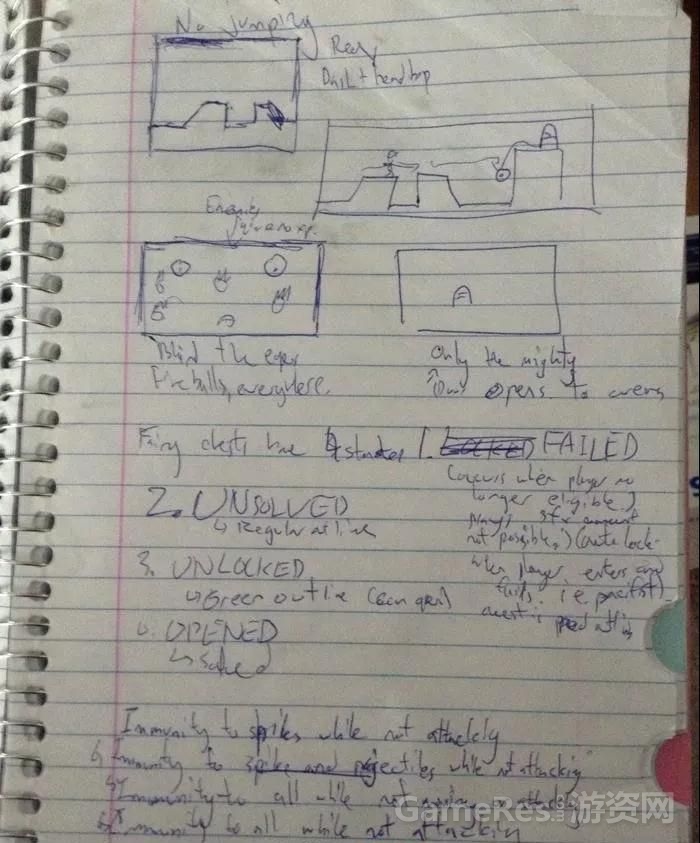 No jumping
Ready
Dash + head bop
Enemy
Blind the eyes
Fireballs, everywhere.
Only the mighty
opens to
Fairy chests have 4 states 1. LOCKED FAILED
(occurs when player no
longer eligible.)
2. UNSOLVED
↳ Regular outline
not possible.)
when player enters and
fails. i.e. pacifist)
3. UNLOCKED
↳ Green outline (can open)
chest is red outline
OPENED
↳ Solved
Immunity to spikes while not attacking
↳ Immunity to spike and projectiles while not attacking
↳ Immunity to all while not moving or attacking
↳ Immunity to all while not attacking
GameRes游资网